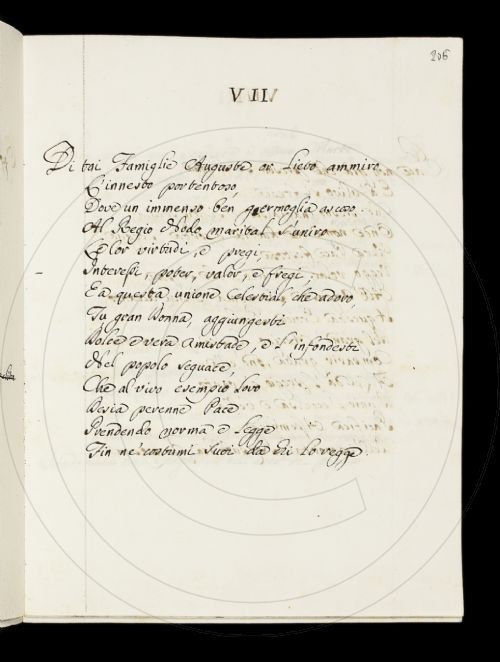 206
VIII
Di tai Famiglie Auguste or Lieto ammiro
L'innesto portentoso,
Dove un immenso ben germoglia ascoso
Al Regio Nodo marital s'uniro
Le lor virtudi, e pregi,
Interessi, poter, valor, e fregi,
E a questa unione Celestial, che adoro,
Tu gran Donna, aggiungesti
Dolce e vera Amistade, e l'infondesti
Nel popolo seguace,
Che al vivo esempio loro
Desia perenne Pace
Prendendo norma e legge
Fin ne' costumi suoi da chi lo regge